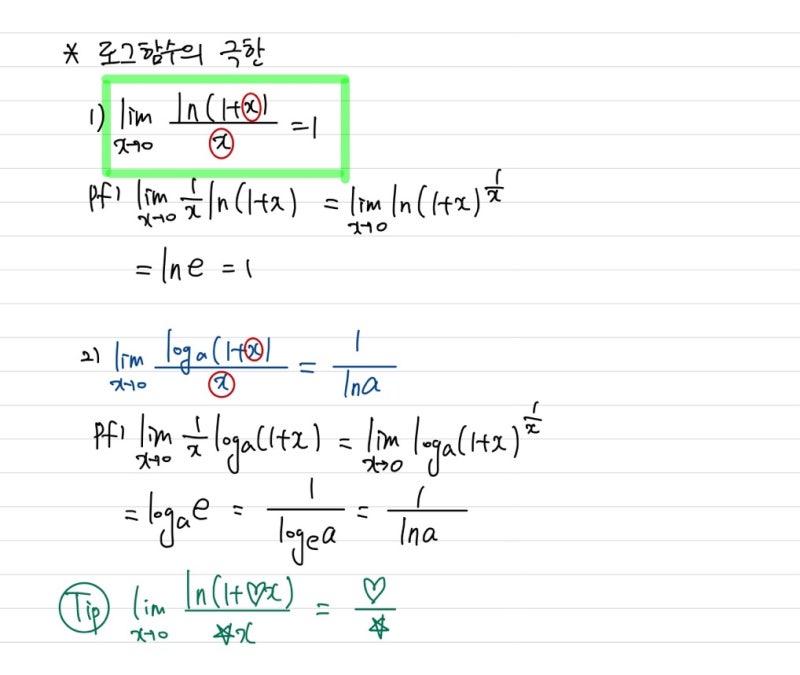 * 로그함수의 극한
1) lim x→0 ln(1+x)/x = 1
pf) lim x→0 1/x ln(1+x) = lim x→0 ln(1+x)^(1/x)
= ln e = 1
2) lim x→0 log_a(1+x)/x = 1/ln a
pf) lim x→0 1/x log_a(1+x) = lim x→0 log_a(1+x)^(1/x)
= log_a e = 1/log_e a = 1/ln a
Tip lim x→0 ln(1+♡x)/☆x = ♡/☆